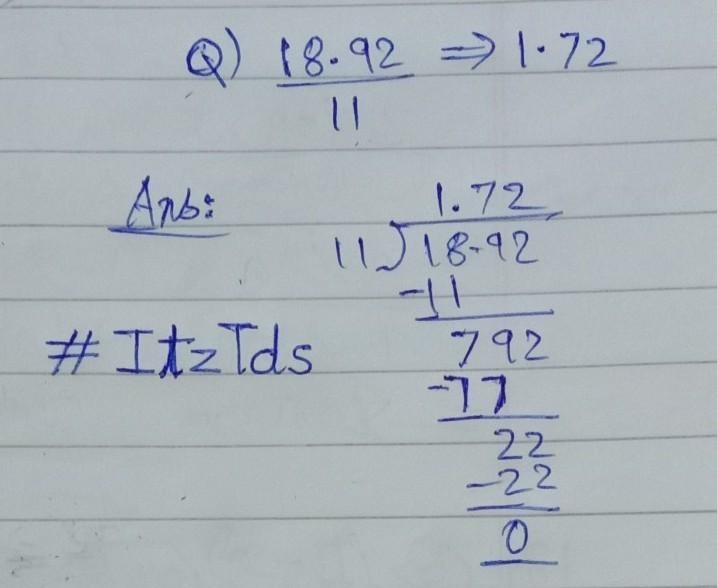 Q) 18.92 ⇒ 1.72
11
Ans:
1.72
11)18.92
-11
792
#ItzTds
-77
22
-22
0